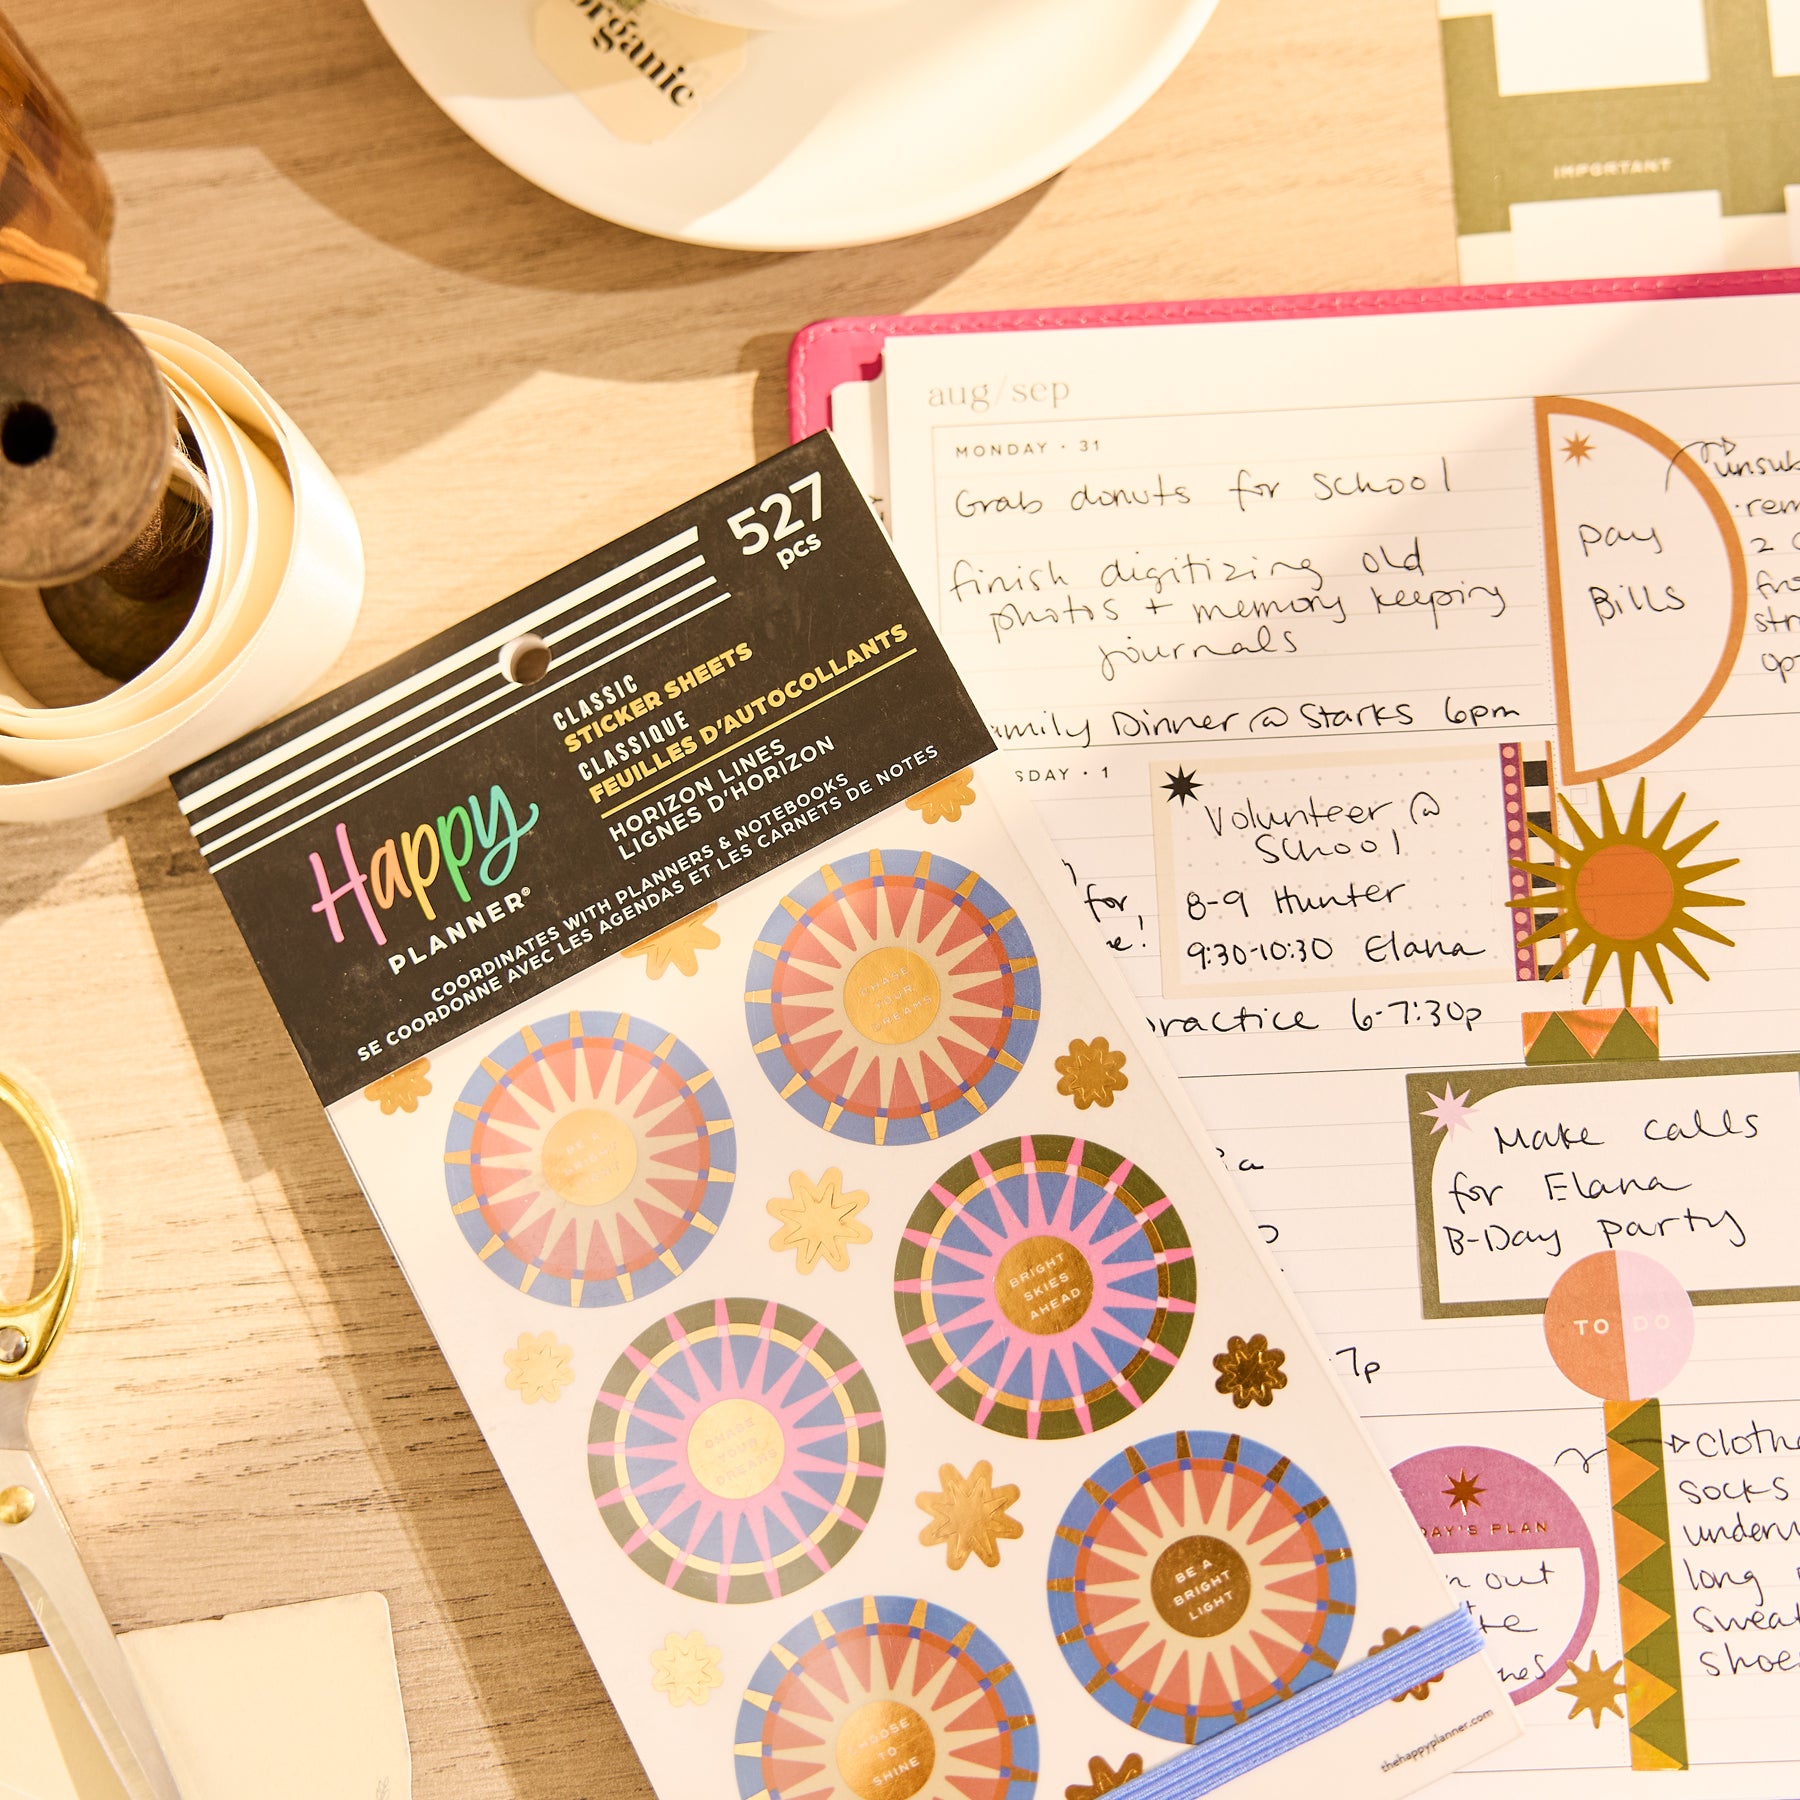 organic
IMPORTANT
527
pcs
CLASSIC
STICKER SHEETS
CLASSIQUE
FEUILLES D'AUTOCOLLANTS
HORIZON LINES
LIGNES D'HORIZON
Happy
PLANNER®
COORDINATES WITH PLANNERS & NOTEBOOKS
SE COORDONNE AVEC LES AGENDAS ET LES CARNETS DE NOTES
CHASE
YOUR
DREAMS
BE A
BRIGHT
LIGHT
BRIGHT
SKIES
AHEAD
CHASE
YOUR
DREAMS
BE A
BRIGHT
LIGHT
CHOOSE
TO
SHINE
thehappyplanner.com
aug/sep
MONDAY · 31
Grab donuts for school
finish digitizing old
photos + memory keeping
journals
amily Dinner @ Starks 6pm
Pay
Bills
unsub
·rem
2
fro
str
op
SDAY · 1
for,
e!
Volunteer @
School
8-9 Hunter
9:30-10:30 Elana
ractice 6-7:30p
Make calls
for Elana
B-Day party
TO DO
7p
DAY'S PLAN
n out
te
nes
clothe
socks
underw
long
sweat
shoe